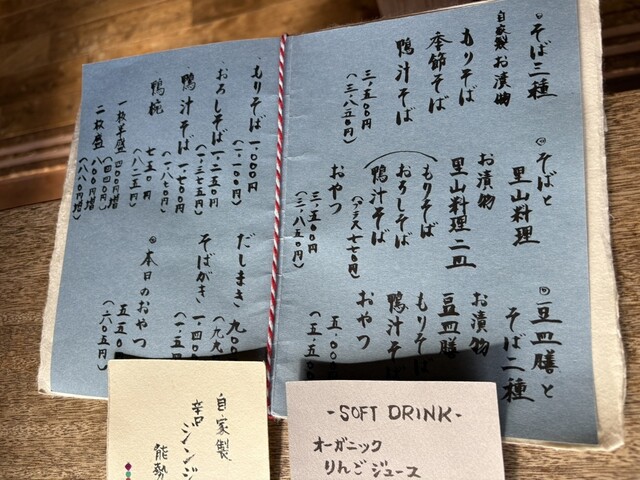 そば三種
自家製お漬物
季節そば
もりそば
鴨汁そば
三、五〇〇円
(三、八五〇円)
そばと
里山料理
お漬物
里山料理二皿
もりそば
おろしそば
鴨汁そば
(プラス七七〇円)
おやつ
三、五〇〇円
(三、八五〇円)
豆皿膳と
そば二種
お漬物
豆皿膳
もりそば
鴨汁そば
おやつ
五、〇〇
(五、五〇
もりそば 一、〇〇〇円
(一、一〇〇円)
おろしそば 一、二五〇円
(一、三七五円)
鴨汁そば 一、七〇〇円
(一、八七〇円)
鴨椀 七五〇円
(八二五円)
一枚半盛 四〇〇円増
(四四〇円増)
二枚盛 八〇〇円増
(八八〇円増)
だしまき 九〇〇
(九九
そばがき 一、四〇
(一、五
本日のおやつ
五五〇
(六〇五円)
自家製
辛口 ジンジ
能勢
-SOFT DRINK-
オーガニック
りんごジュース